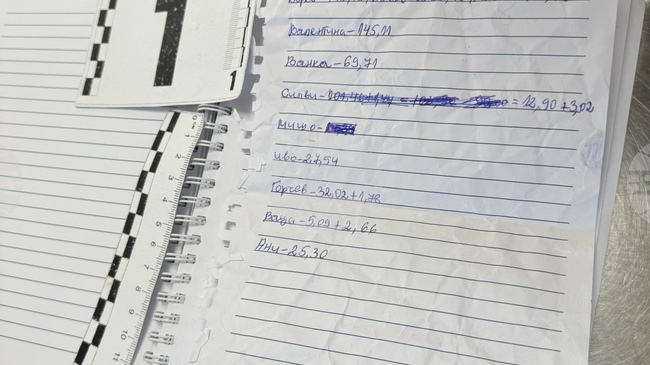 1
1
Валентина-145,11
Ванка-69,71
Слави- = 12,90+3,02
Мишо-
Иво-27,54
Горчев-32,02+1,78
Ваца-5,09+2,66
Ани-25,30
cm 1 2 3 4 5 6 7 8 9 10 11